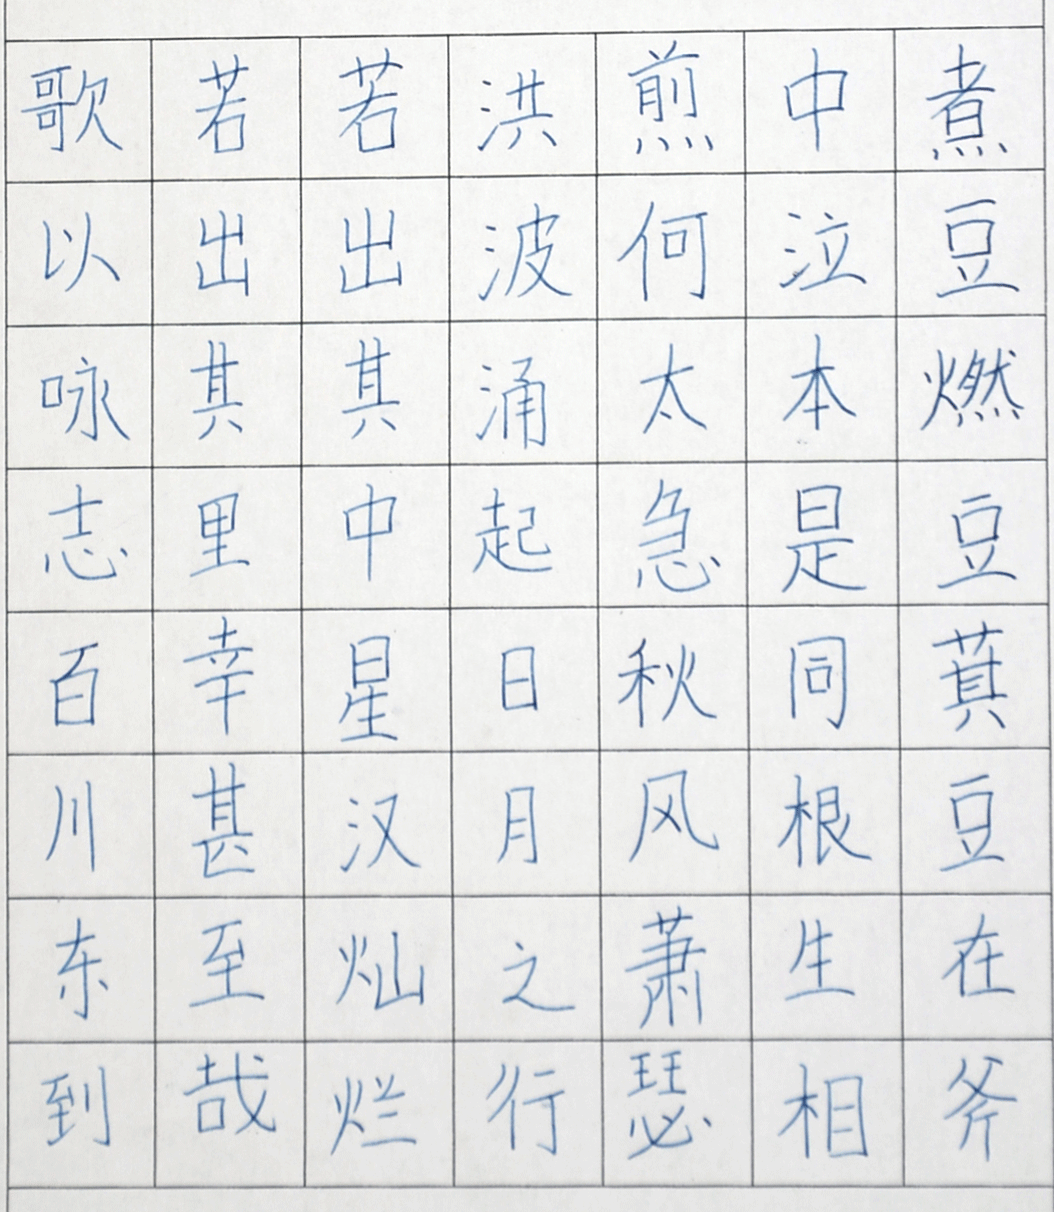 煮豆燃豆萁豆在斧
中泣本是同根生相
煎何太急秋风萧瑟
洪波涌起日月之行
若出其中星汉灿烂
若出其里幸甚至哉
歌以咏志百川东到